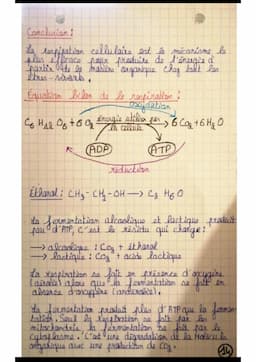 Conclusion :
La respiration cellulaire est le mécanisme le
plus efficace pour produire de l'énergie à
partir de la matière organique chez tout les
êtres-vivants.
Equation bilan de la respiration :
oxydation
C6 H12 O6 + 6 O2 énergie utilisée par la cellule 6 CO2 + 6 H2O
ADP ATP
réduction
Éthanol : CH3 - CH2 - OH → C2 H6 O
La fermentation alcoolique et lactique produit
peu d'ATP, c'est le résidu qui change :
→ alcoolique : CO2 + éthanol
→ lactique : CO2 + acide lactique
La respiration se fait en présence d'oxygène
(aérobie) alors que la fermentation se fait en
absence d'oxygène (anaérobie).
La fermentation produit plus d'ATP que la fermen-
tation. Seul la respiration se fait par les
mitochondries, la fermentation se fait par le
cytoplasme. C'est une dégradation de la molécule
organique avec une production de CO2.
14